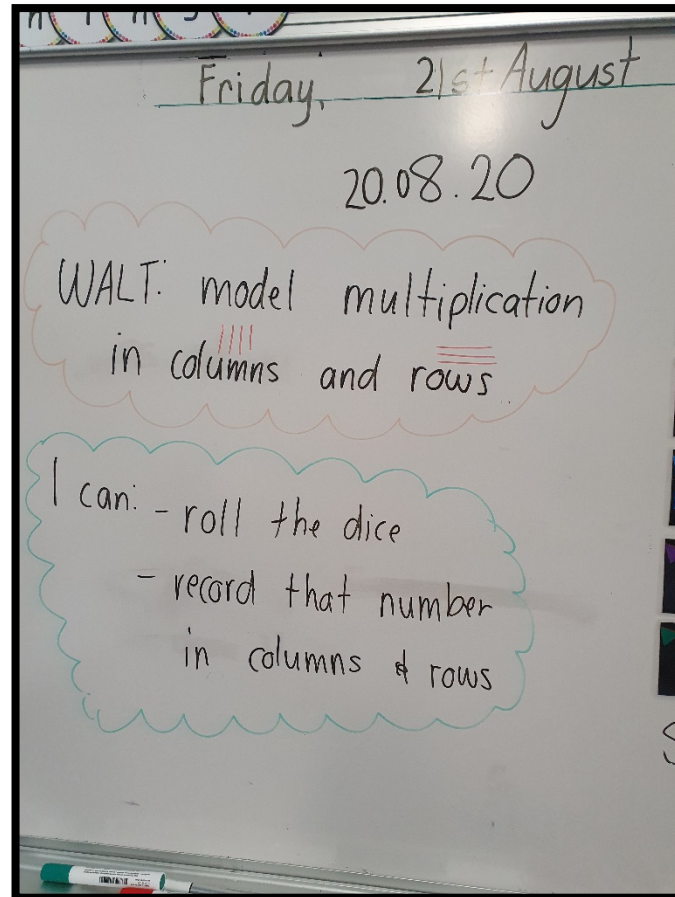 Friday, 21st August
20.08.20
WALT: model multiplication
in columns and rows
I can: - roll the dice
- record that number
in columns & rows